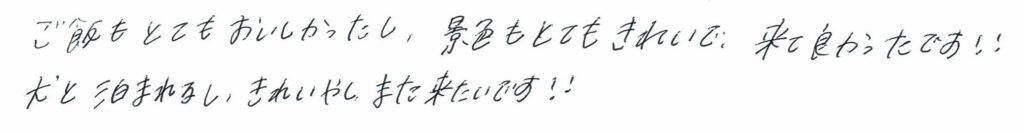 ご飯もとてもおいしかったし、景色もとてもきれいで、来て良かったです!!
犬と泊まれるし、きれいやし、また来たいです!!